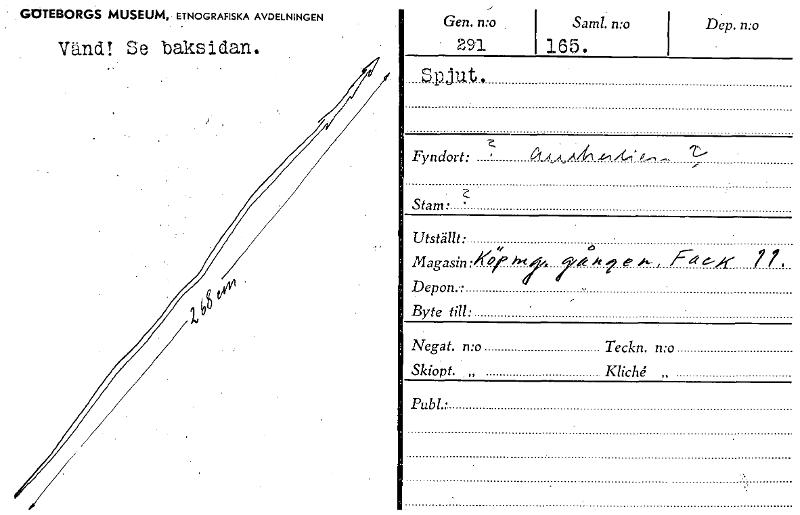 GÖTEBORGS MUSEUM, ETNOGRAFISKA AVDELNINGEN
Vänd! Se baksidan.
268 cm
Gen. n:o Saml. n:o Dep. n:o
291 165.
Spjut.
Fyndort: ? Australien ?
Stam: ?
Utställt:
Magasin: Köpmg. gången. Fack 11.
Depon.:
Byte till:
Negat. n:o Teckn. n:o
Skiopt. „ Kliché „
Publ.: